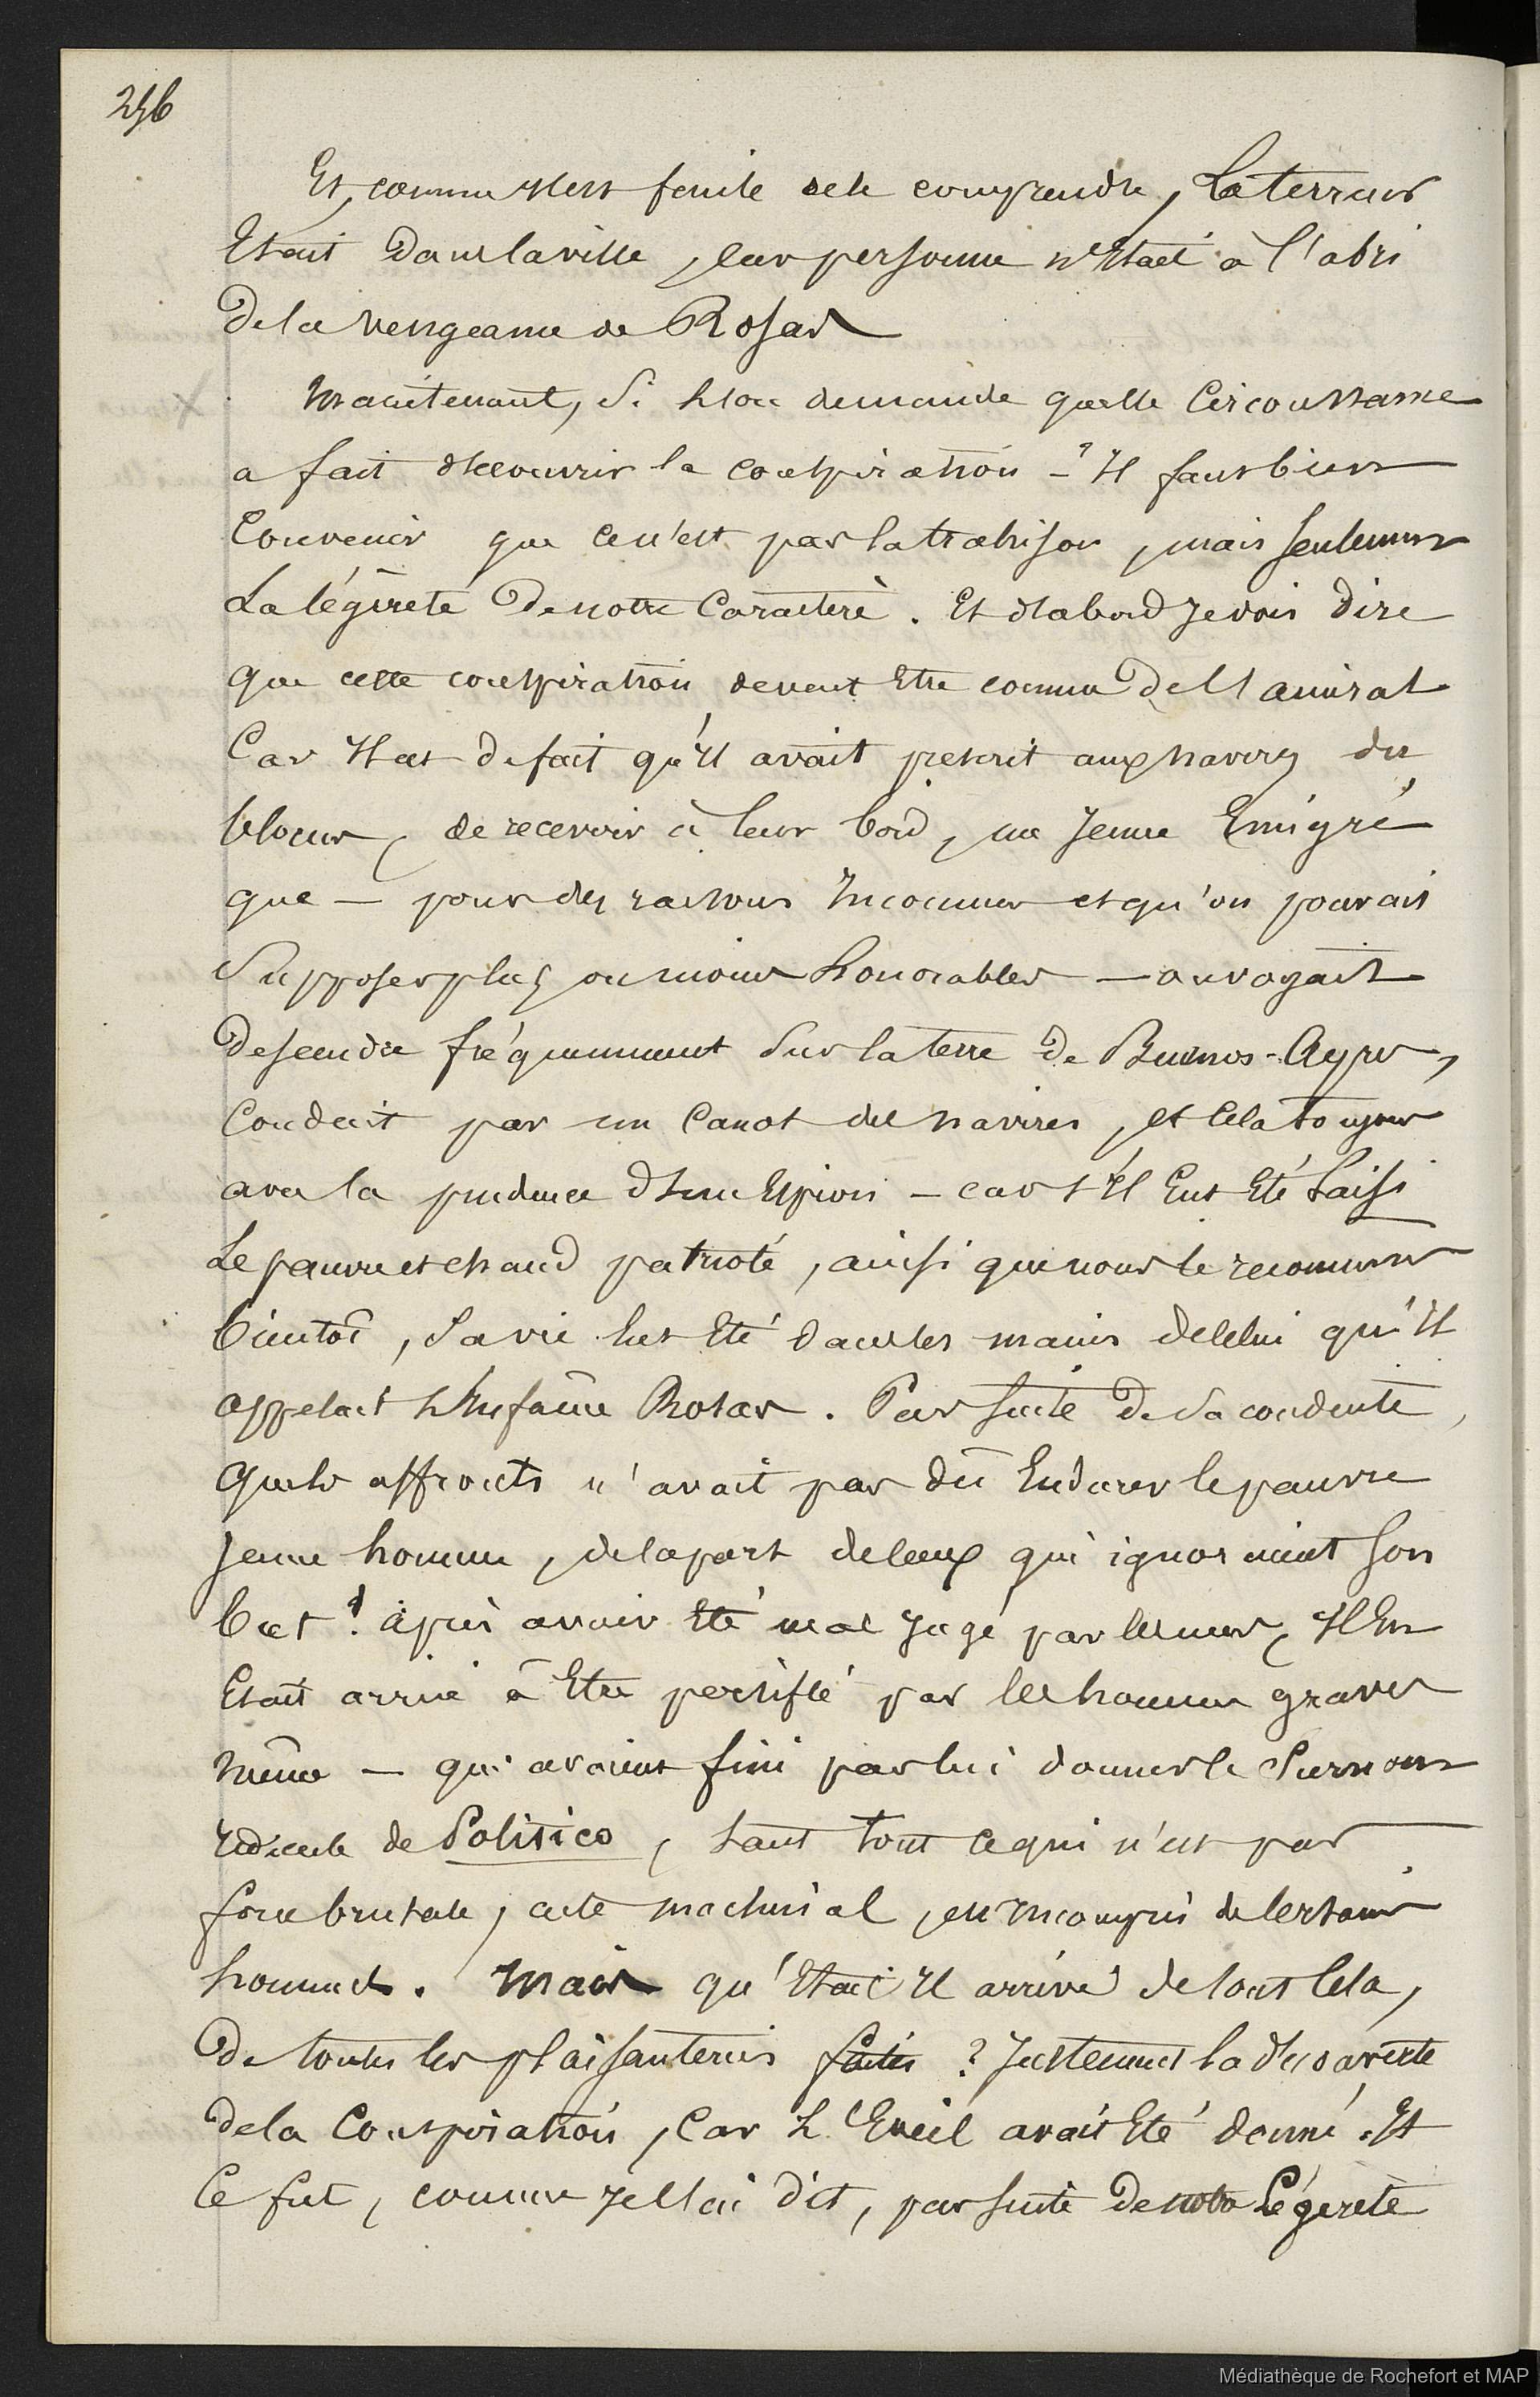 256
Et, comme il est facile de le comprendre, la terreur
Etait dans la ville, car personne n'Etait à l'abri
De la vengeance de Rosas
Maintenant, Si l'on demande quelle Circonstance
a fait découvrir la conspiration - ? Il faut bien
Convenir que ce n'est pas la trahison, mais seulement
La légèreté De notre Caractère. Et d'abord je vais dire
que cette conspiration devait Etre connue de l'amiral
Car Il est de fait qu'Il avait prescrit aux navires du
blocus, de recevoir à leur bord, un jeune Emigré
que — pour des raisons Inconnues et qu'on pouvait
Supposer plus ou moins honorables — on voyait
Descendre fréquemment Sur la terre de Buenos-Ayres,
Conduit par un Canot des navires, et Cela toujours
avec la prudence d'un Espion - car s'Il Eut Eté Saisi
Le pauvre et chaud patriote, ainsi que nous le reconnumes
bientôt, Sa vie eut Eté dans les mains de Celui qu'Il
appelait L'Infâme Rosas. Par suite De Sa conduite,
Quels affronts n'avait pas dû Endurer le pauvre
jeune homme, de la part de Ceux qui ignoraient son
but ! après avoir Eté mal jugé par les uns, Il En
Etait arrivé à Etre persiflé par les hommes graves
même — qui avaient fini par lui donner le Surnom
ridicule de Politico, tant tout ce qui n'est pas
force brutale, acte machinal, est Incompris de Certains
hommes. Mais qu'Etait Il arrivé de tout Cela,
De toutes les plaisanteries faites ? Justement la découverte
de la Conspiration, Car L'Eveil avait Eté donné. Et
Ce fut, comme je l'ai dit, par suite De notre Légèreté
Médiathèque de Rochefort et MAP